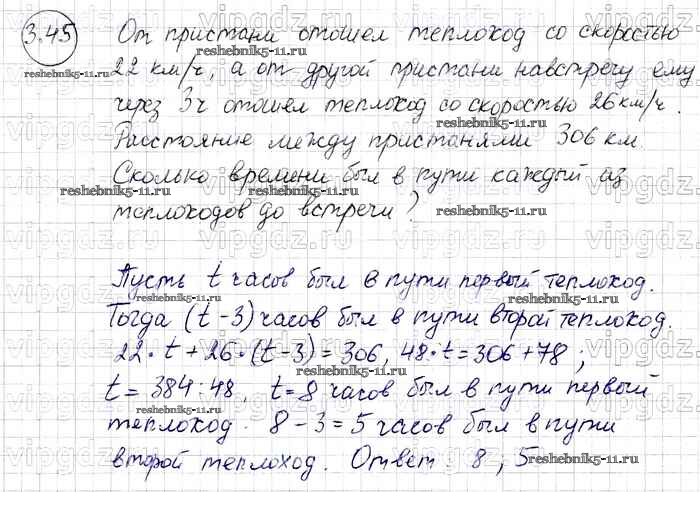 3.45 От пристани отошел теплоход со скоростью
22 км/ч, а от другой пристани навстречу ему
через 3ч отошел теплоход со скоростью 26 км/ч.
Расстояние между пристанями 306 км.
Сколько времени был в пути каждый из
теплоходов до встречи?
Пусть t часов был в пути первый теплоход.
Тогда (t-3) часов был в пути второй теплоход.
22·t + 26·(t-3) = 306, 48·t = 306 + 78;
t = 384:48, t = 8 часов был в пути первый
теплоход. 8 - 3 = 5 часов был в пути
второй теплоход. Ответ: 8, 5
reshebnik5-11.ru
vipgdz.ru